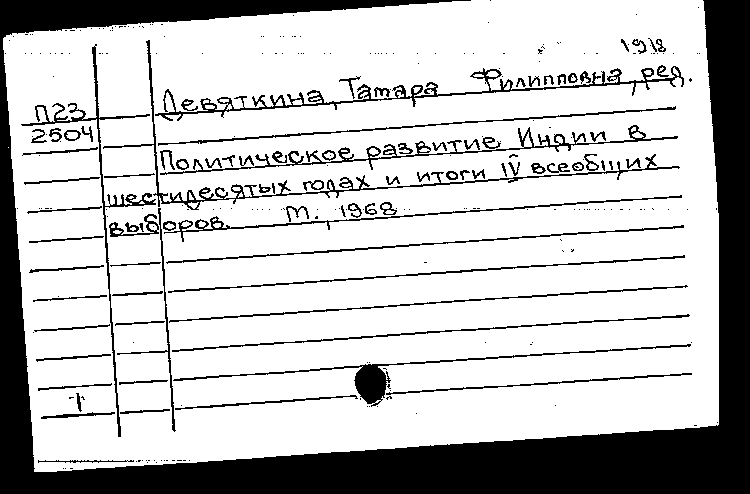 1918
П23 Девяткина, Тамара Филипповна, ред.
2504
Политическое развитие Индии в
шестидесятых годах и итоги IV всеобщих
выборов. М., 1968